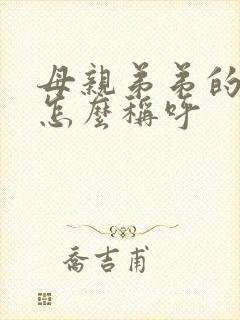 母親弟弟的
怎麼稱呼
喬吉甫